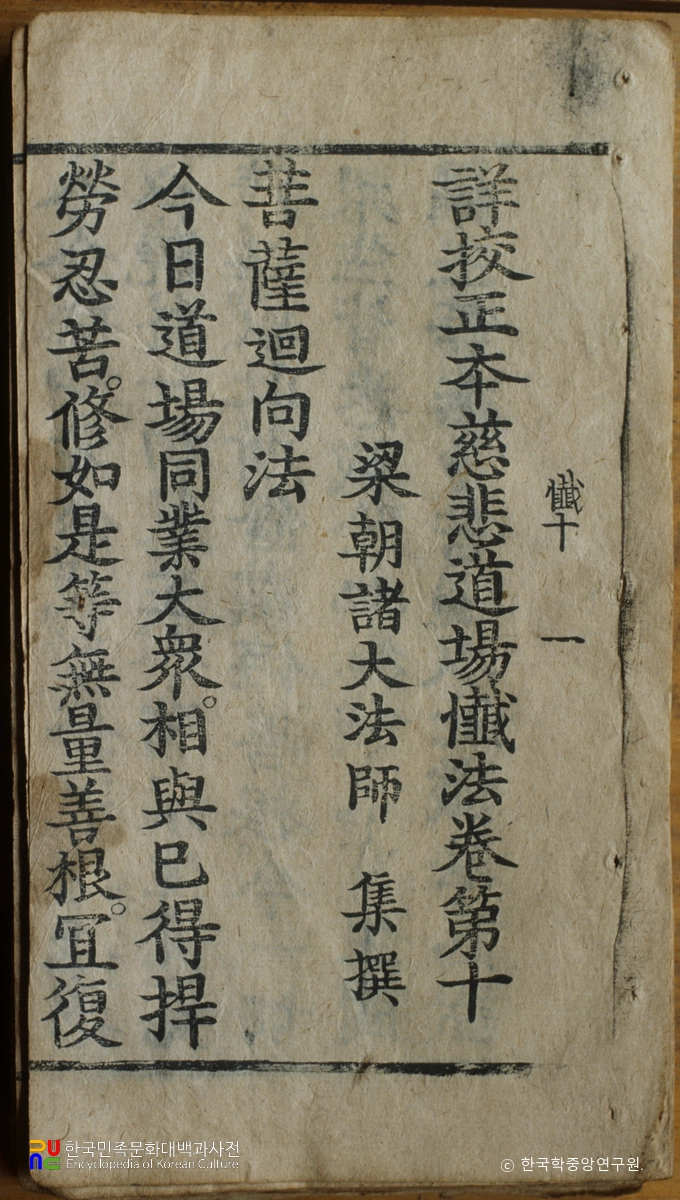 懺十 一
詳挍正本慈悲道場懺法卷第十
梁朝諸大法師 集撰
菩薩迴向法
今日道場同業大衆。相與已得捍
勞忍苦。修如是等無量善根。冝復
한국민족문화대백과사전
Encyclopedia of Korean Culture
© 한국학중앙연구원.